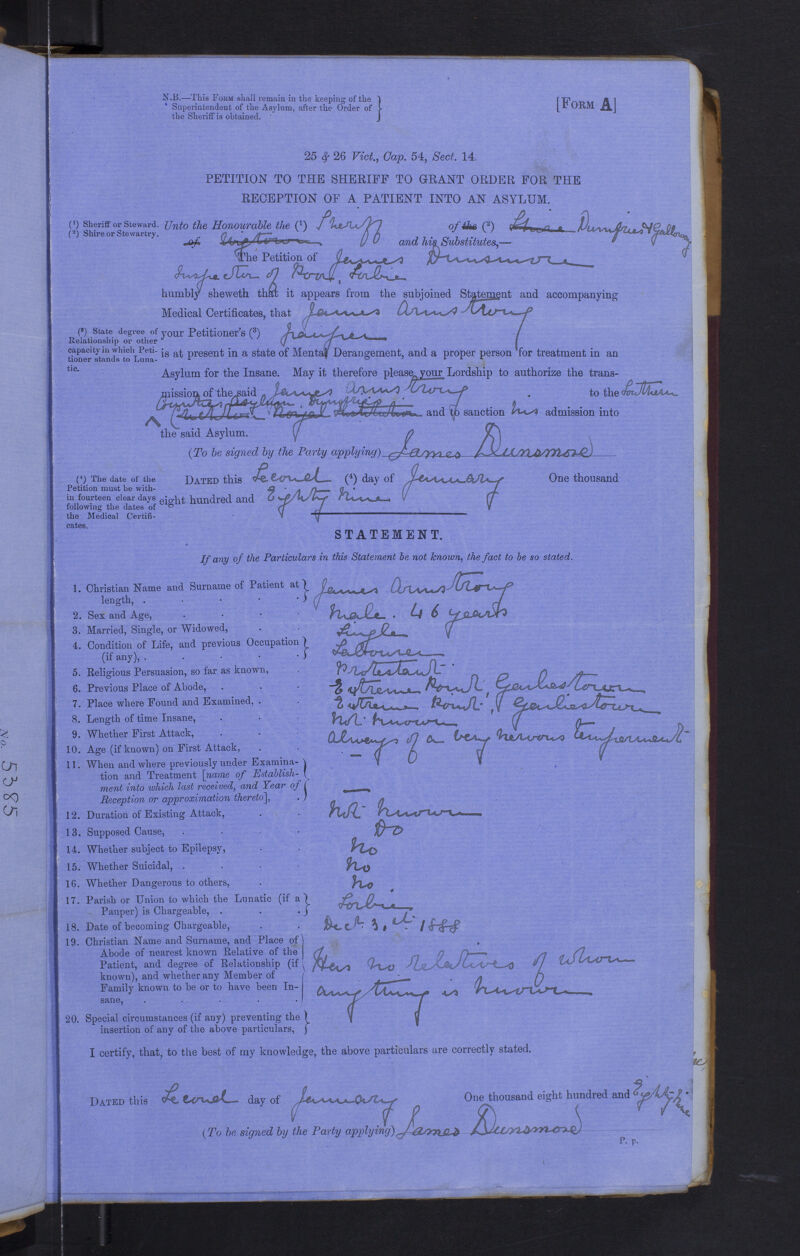 N.B.—This Form shall remain in the keeping of the
Superintendent of the Asylum, after the Order of
the Sheriff is obtained.
[Form A]
25 & 26 Vict., Cap. 54, Sect. 14.
PETITION TO THE SHERIFF TO GRANT ORDER FOR THE
RECEPTION OF A PATIENT INTO AN ASYLUM.
(1) Sheriff or Steward.
(2) Shire or Stewartry.
Unto the Honourable the (1) Sheriff of the (2) Dumfries & Galloway
of and his Substitutes,—
The Petition of James Dunsmore
Inspector of Poor, Sorbie
humbly sheweth that it appears from the subjoined Statement and accompanying
Medical Certificates, that James Armstrong
(3) State degree of
Relationship or other
capacity in which Peti-
tioner stands to Luna-
tic.
your Petitioner's (3) pauper
is at present in a state of Mental Derangement, and a proper person for treatment in an
Asylum for the Insane. May it therefore please your Lordship to authorize the trans-
mission of the said James Armstrong to the Southern
Counties Asylum, Dumfries.
Royal Institution and to sanction his admission into
the said Asylum.
(To be signed by the Party applying) James Dunsmore
(4) The date of the
Petition must be with-
in fourteen clear days
following the dates of
the Medical Certifi-
cates.
Dated this Second (4) day of January One thousand
eight hundred and Eighty Nine
STATEMENT.
If any of the Particulars in this Statement be not known, the fact to be so stated.
1. Christian Name and Surname of Patient at
length, . James Armstrong
2. Sex and Age, Male. 46 years
3. Married, Single, or Widowed, Single
4. Condition of Life, and previous Occupation
(if any), . Labourer
5. Religious Persuasion, so far as known, Protestant
6. Previous Place of Abode, . Extreme Point, Garliestown
7. Place where Found and Examined, . Extreme Point, Garliestown
8. Length of time Insane, Not known
9. Whether First Attack, Always of a very nervous temperment
10. Age (if known) on First Attack, —
11. When and where previously under Examina-
tion and Treatment [name of Establish-
ment into which last received, and Year of
Reception or approximation thereto], —
12. Duration of Existing Attack, Not known
13. Supposed Cause, Do
14. Whether subject to Epilepsy, No
15. Whether Suicidal, . No
16. Whether Dangerous to others, No.
17. Parish or Union to which the Lunatic (if a
Pauper) is Chargeable, . Sorbie
18. Date of becoming Chargeable, Dect. 31st 1888
19. Christian Name and Surname, and Place of
Abode of nearest known Relative of the
Patient, and degree of Relationship (if
known), and whether any Member of
Family known to be or to have been In-
sane, . Has no relatives of whom
anything is known
20. Special circumstances (if any) preventing the
insertion of any of the above particulars,
I certify, that, to the best of my knowledge, the above particulars are correctly stated.
Dated this Second day of January One thousand eight hundred and Eighty-nine
(To be signed by the Party applying) James Dunsmore
P. P.
No. 5385